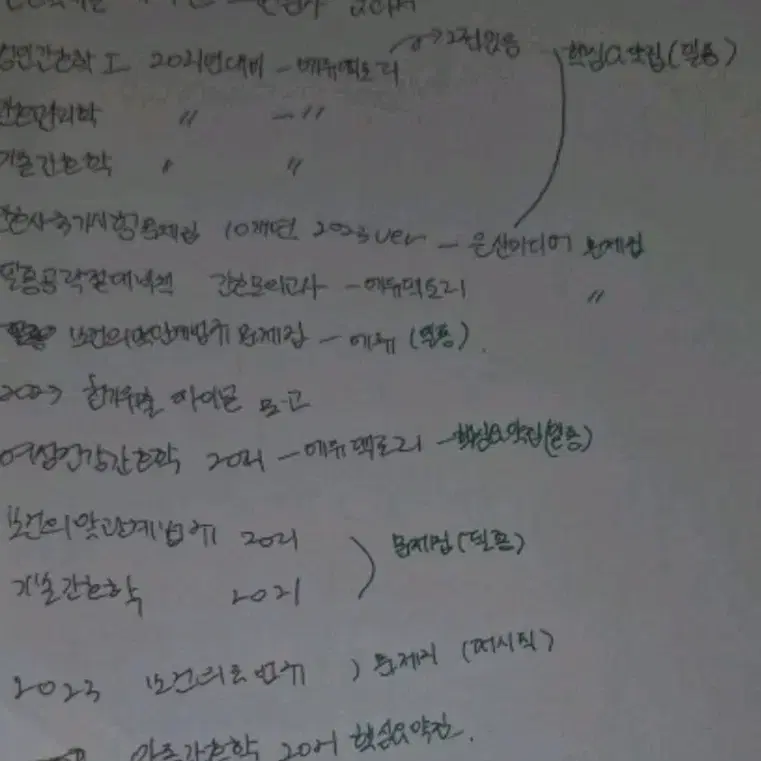 성인간호학 I 2021년대비 - 에듀팩토리 → 2권있음 핵심요약집(필통)
간호관리학 〃 - 〃
기본간호학 〃 〃
간호사국가시험문제집 10개년 2023ver - 은산미디어 문제집
필통공략절대녀석 간호모의고사 - 에듀팩토리 〃
보건의약관계법규 문제집 - 에듀 (필통).
2023 합격유발 파이널 모고
여성건강간호학 2021 - 에듀팩토리 - 핵심요약집(필통)
보건의약관계법규 2021
기본간호학 2021 ) 문제집(필통)
2023 보건의료법규 ) 문제지 (퍼시픽)
아동간호학 2021 핵심요약집.